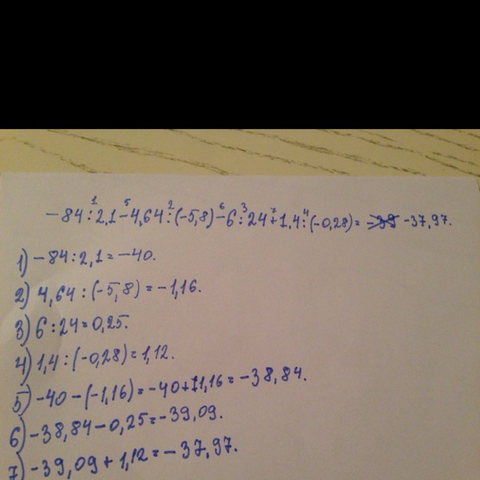 -84:2,1-4,64:(-5,8)-6:24+1,4:(-0,28)= -37,97.
1) -84:2,1=-40.
2) 4,64:(-5,8)=-1,16.
3) 6:24=0,25.
4) 1,4:(-0,28)=1,12.
5) -40-(-1,16)=-40+1,16=-38,84.
6) -38,84-0,25=-39,09.
7) -39,09+1,12=-37,97.